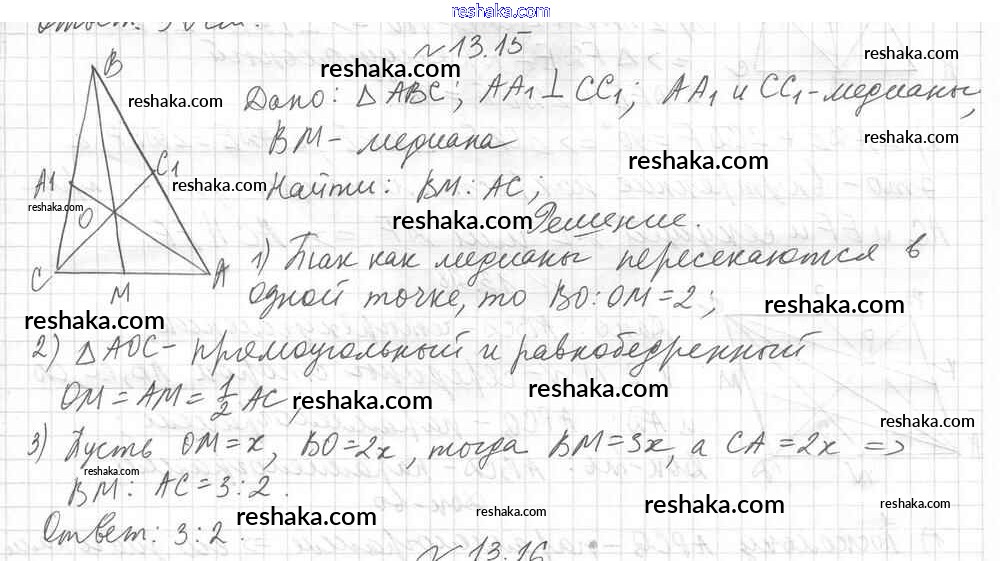 reshaka.com
№13.15
Дано: △ABC; AA1⊥CC1; AA1 и CC1-медианы,
BM- медиана
Найти: BM:AC;
Решение.
1) Так как медианы пересекаются в
одной точке, то BO:OM=2;
2) △AOC- прямоугольный и равнобедренный
OM=AM=1/2 AC,
3) Пусть OM=x, BO=2x, тогда BM=3x, а CA=2x =>
BM: AC=3:2.
Ответ: 3:2.
№13.16
B
C1
A1
O
C
M
A
reshaka.com
reshaka.com
reshaka.com
reshaka.com
reshaka.com
reshaka.com
reshaka.com
reshaka.com
reshaka.com
reshaka.com
reshaka.com
reshaka.com
reshaka.com
reshaka.com
reshaka.com
reshaka.com
reshaka.com
reshaka.com